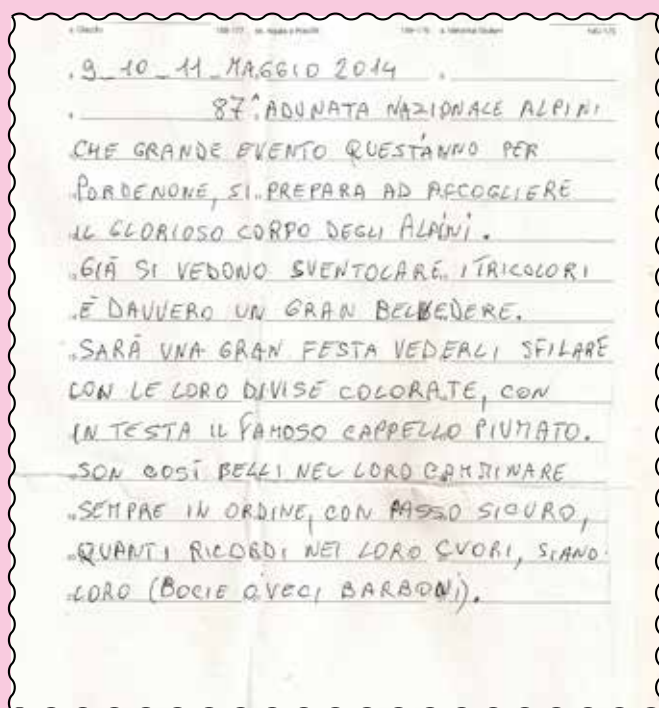 9_10_11_MAGGIO 2014
87^ ADUNATA NAZIONALE ALPINI
CHE GRANDE EVENTO QUEST'ANNO PER
PORDENONE, SI PREPARA AD ACCOGLIERE
IL GLORIOSO CORPO DEGLI ALPINI.
GIÀ SI VEDONO SVENTOLARE I TRICOLORI
È DAVVERO UN GRAN BELVEDERE.
SARÀ UNA GRAN FESTA VEDERLI SFILARE
CON LE LORO DIVISE COLORATE, CON
IN TESTA IL FAMOSO CAPPELLO PIUMATO.
SON COSÌ BELLI NEL LORO CAMMINARE
SEMPRE IN ORDINE, CON PASSO SICURO,
QUANTI RICORDI NEI LORO CUORI, SIANO
LORO (BOCIE O VECI BARBONI).